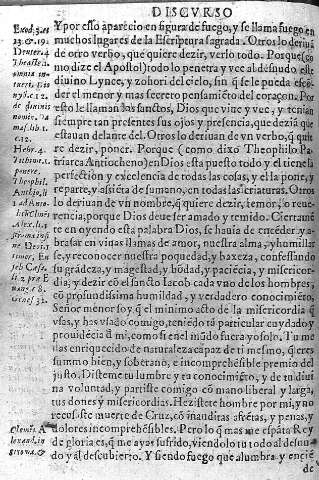 DISCVRSO
Y por esso aparecio en figura de fuego, y se llama fuego en
muchos lugares de la Escriptura sagrada. Otros lo deriuã
de otro verbo, que quiere dezir, verlo todo. Porque (co
mo dize el Apostol) todo lo penetra y vee al desnudo este
diuino Lynce, y zohori del cielo, sin q̃ se le pueda escõ-
der el menor y mas secreto pensamiẽto del coraçon. Por
esto le llaman los sanctos, Dios que viue y vee, y tenian
siempre tan presentes sus ojos y presencia, que dezia que
estauan delante del. Otros lo deriuan de vn verbo, q̃ quie
re dezir, poner. Porque (como dixo Theophilo Pa-
triarca Antiocheno) en Dios esta puesto todo y el tiene la
perfectiõn y excelencia de todas las cosas, y ella pone, y
reparte, y assiẽta de su mano, en todas las criaturas. Otros
lo deriuan de vn nombre, q̃ quiere dezir, temor, o reue-
rencia, porque Dios deue ser amado y temido. Ciertamẽ
te en oyendo esta palabra Dios, se hauia de encẽder y a-
brasar en viuas llamas de amor, nuestra alma, y humillar
se, y reconocer nuestra poquedad, y baxeza, confessando
su grãdeza, y magestad, y bõdad, y paciẽcia, y misericor-
dia, y dezir cõ el sancto Iacob cada vno de los hombres,
cõ profundissima humildad, y verdadero conocimiẽto,
Señor menor soy q̃ el minimo acto de la misericordia q̃
vsas, y has vsado comigo, teniẽdo tã particular cuydado y
prouidẽcia d̃ mi, como si en el mũdo fuera yo solo. Tu me
has enriquecido de naturaleza capaz de ti mesmo, q̃ eres
summo bien, y soberano, e incomprehẽsible premio del
justo. Disteme tu lumbre y tu conocimiẽto, y de tu diui
na voluntad, y partiste comigo cõ mano liberal y larga,
tus dones y misericordias. Hezistete hombre por mi, y no
recusaste muerte de Cruz, cõ inauditas afrẽtas, y penas, y
dolores incomprehẽsibles. Pero lo q̃ mas me espãta Rey
de gloria es, q̃ me ayas sufrido, viendolo tu todo al desnu
do y al descubierto. Y siendo fuego que alumbra y enciẽ
de
Exod. 3. et
13. & 19.
Deuter. 4
Hebr. 4
ponere.
Theophil.
Clemẽs A
lexand. in